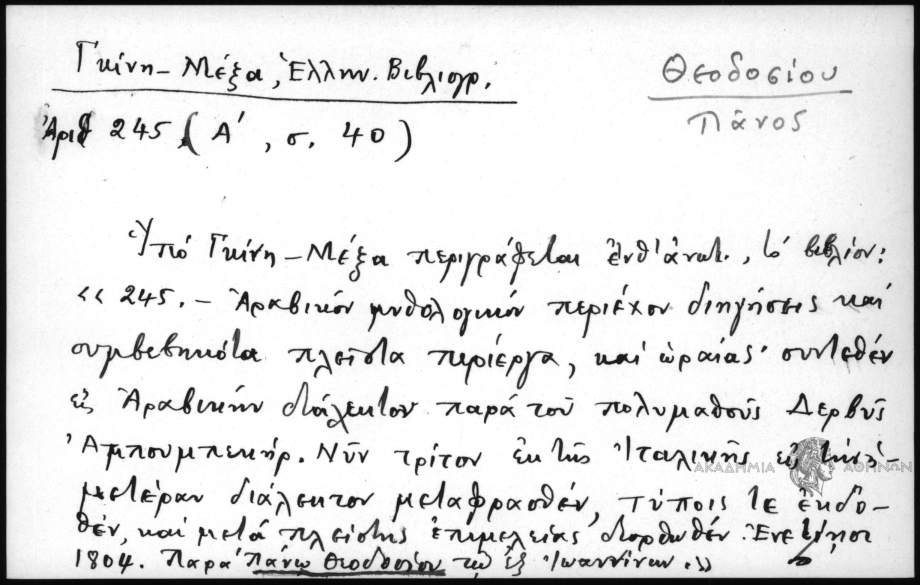 Γκίνη – Μέξα, Ἑλλην. Βιβλιογρ.
Θεοδοσίου
Πάνος
Ἀριθ 245 (Α΄, σ. 40)
Ὑπό Γκίνη – Μέξα περιγράφεται ἐνθ' ἀνωτ., τό βιβλίον:
«245. – Ἀραβικόν μυθολογικόν περιέχον διηγήσεις καί
συμβεβηκότα πλεῖστα περίεργα, καί ὡραίας· συντεθέν
εἰς Ἀραβικήν διάλεκτον παρά τοῦ πολυμαθοῦς Δερβῦς
Ἀμπουμπεκήρ. Νῦν τρίτον ἐκ τῆς Ἰταλικῆς εἰς τήν ἡ-
μετέραν διάλεκτον μεταφρασθέν, τύποις τε ἐκδο-
θέν, καί μετά πλείστης ἐπιμελείας διορθωθέν. Ἐνετίῃσι
1804. Παρά Πάνῳ Θεοδοσίου τῷ ἐξ Ἰωαννίνων.»
ΑΚΑΔΗΜΙΑ ΑΘΗΝΩΝ